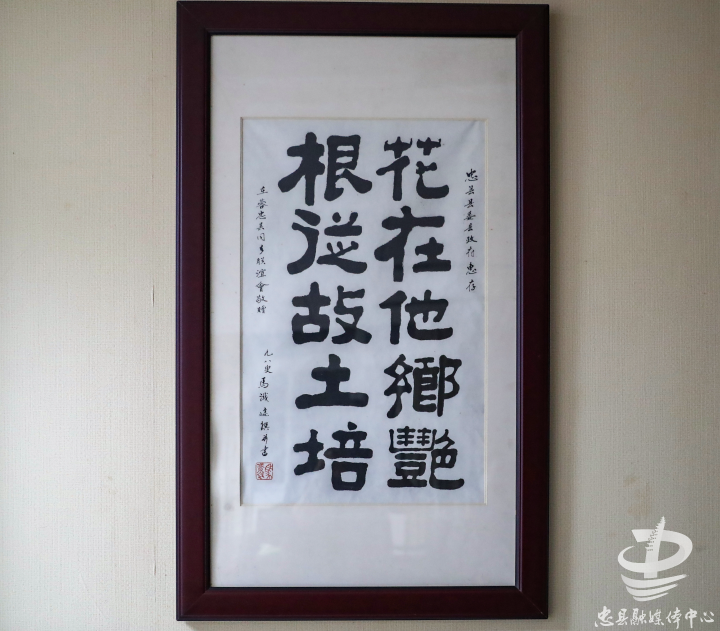 忠县县委县政府惠存
花在他鄉艷
根從故土培
在蓉忠县同乡联谊會敬贈
九八叟馬識途撰并書
忠县融媒体中心